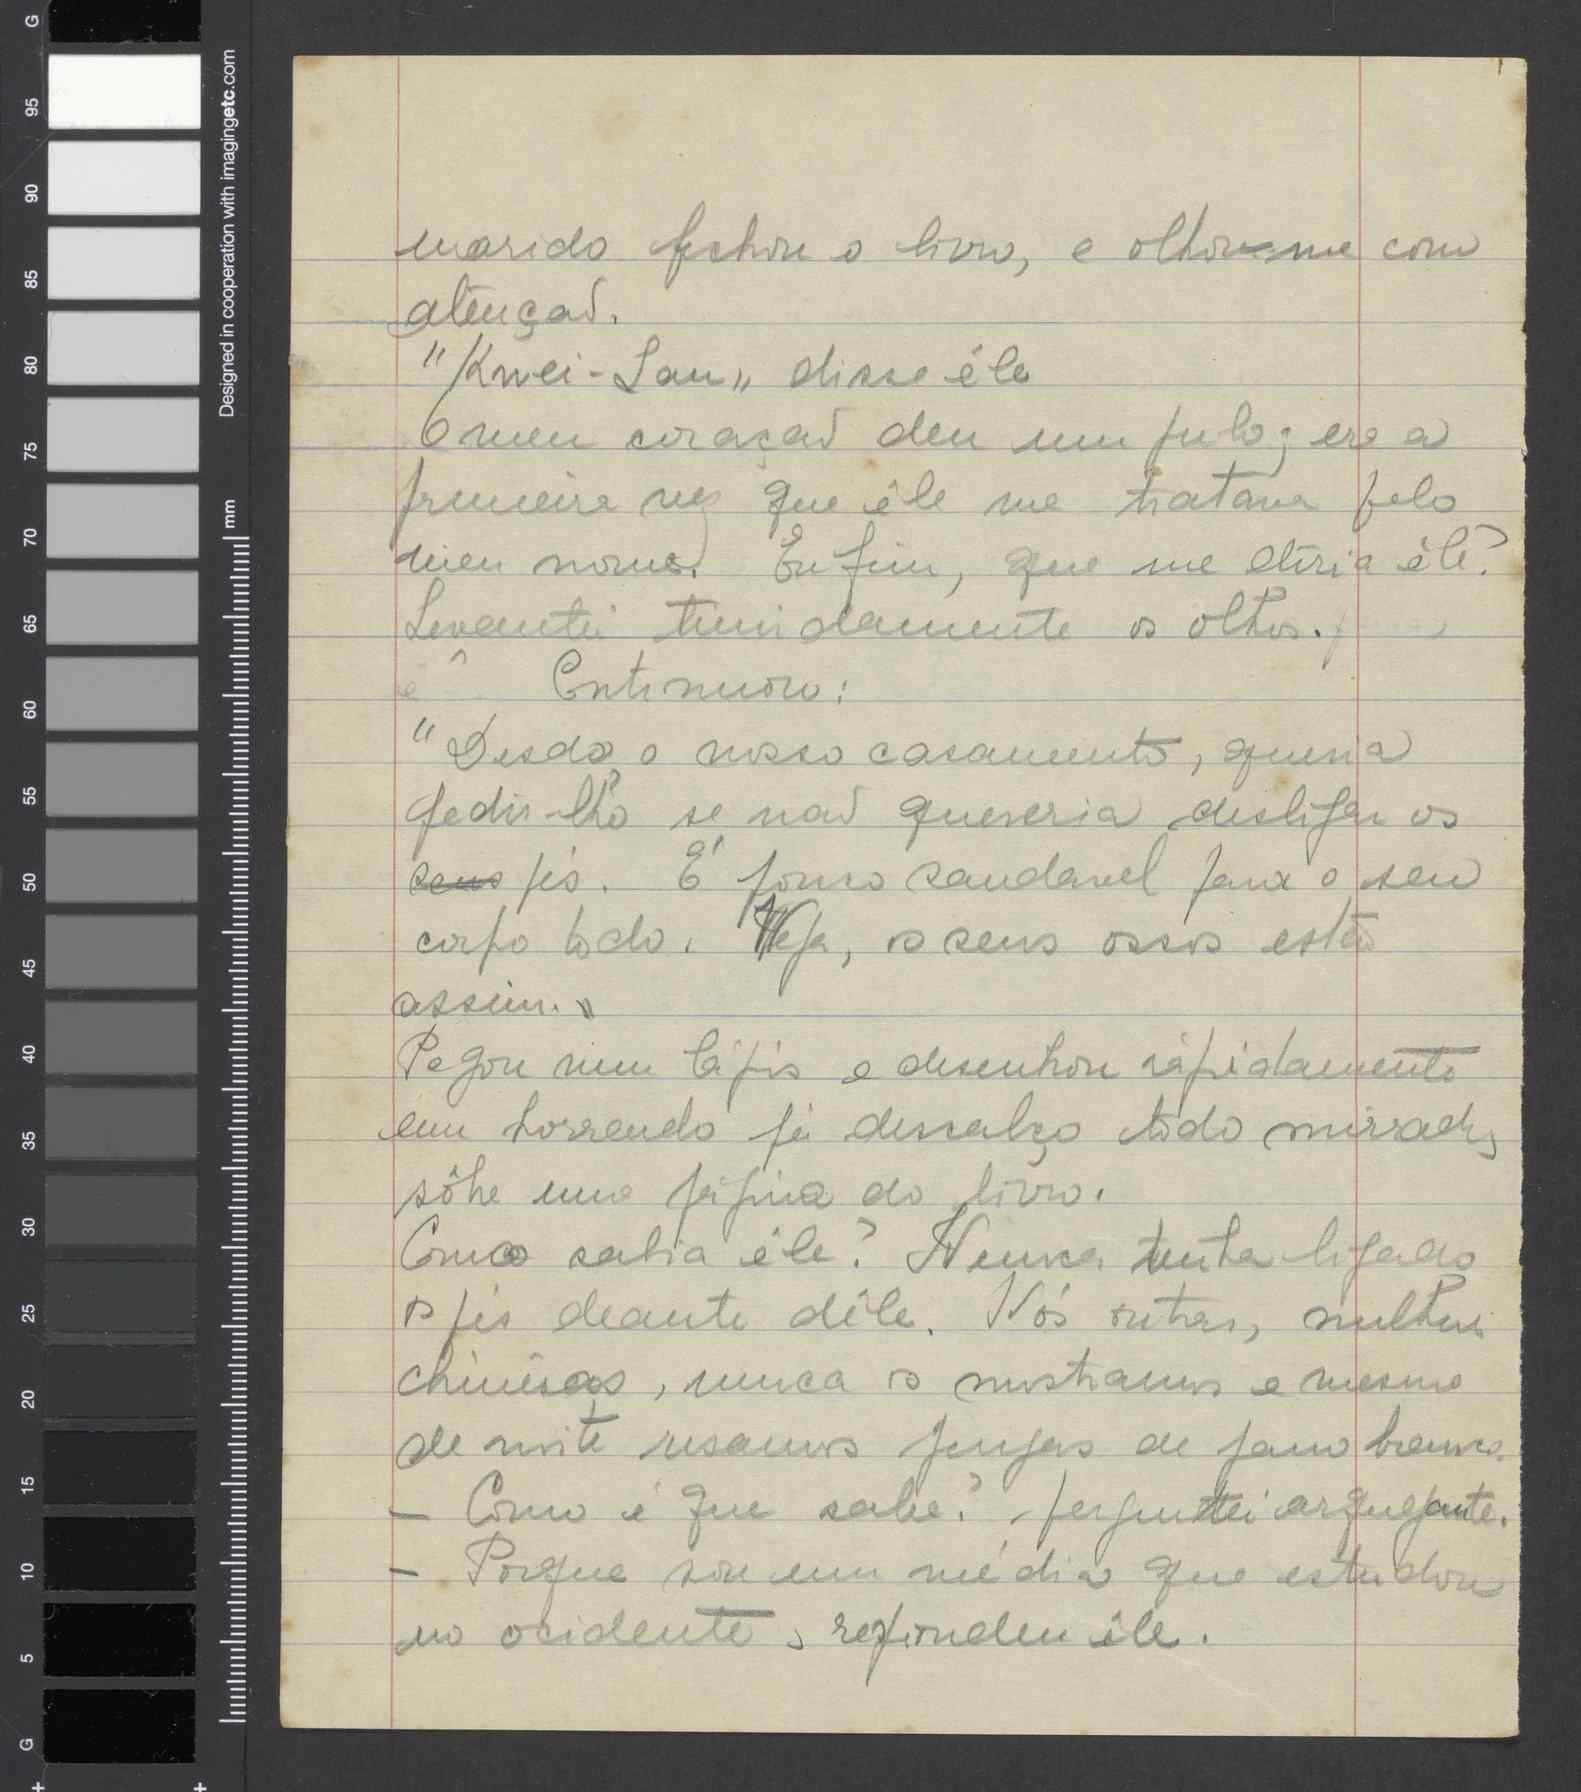 marido fechou o livro, e olhou-me com
atençaõ.
"Kwei-Lan" disse êle
O meu coraçaõ deu um pulo; era a
primeira vez que êle me tratava pelo
meu nome. Enfim, que me diria êle?
Levantei timidamente os olhos.
ê Continuou:
"Desde o nosso casamento, queria
pedir-lhe se naõ quereria desligar os
seus pés. É pouco saudavel para o seu
corpo todo. Veja, os seus ossos estão
assim."
Pegou num lápis e desenhou ràpidamente
um horrendo pé descalço todo mirrado,
sôbre uma página do livro.
Como sabia êle? Nunca tinha ligado
os pés deante dêle. Nós outras, mulheres
chinêsas, nunca os mostramos e mesmo
de noite usamos peugas de pano branco.
- Como é que sabe? perguntei arquejante.
- Porque sou um médico que estudou
no ocidente, respondeu êle.
G
95
90
85
80
75
70
65
60
55
50
45
40
35
30
25
20
15
10
5
G
Designed in cooperation with imagingetc.com
mm